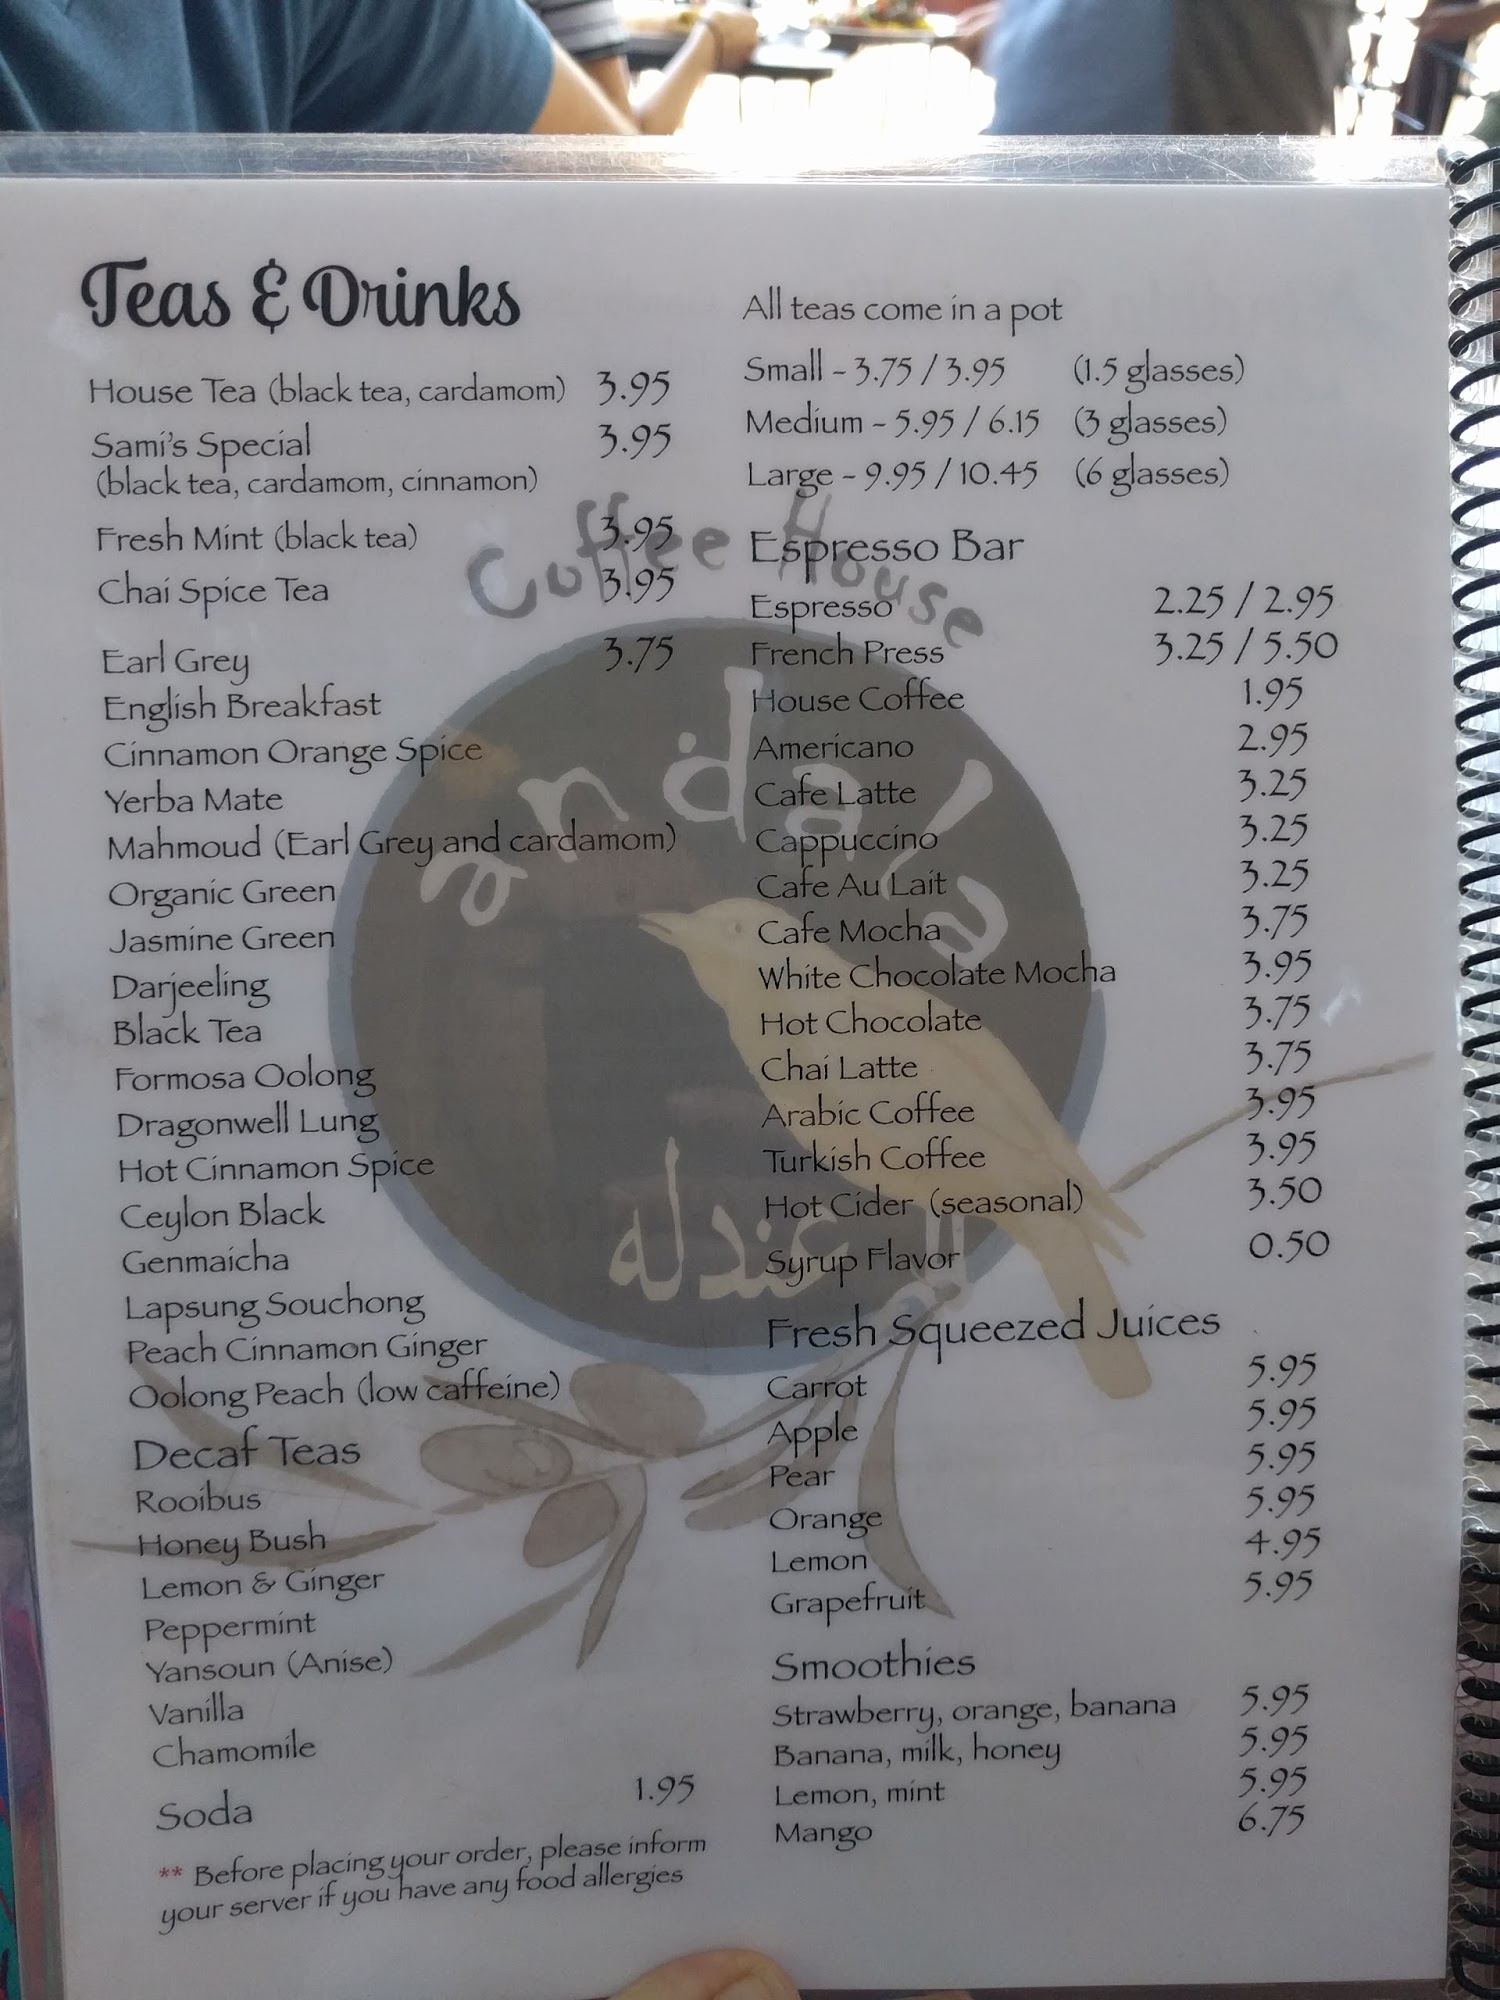 Teas & Drinks
House Tea (black tea, cardamom) 3.95
Sami's Special 3.95
(black tea, cardamom, cinnamon)
Fresh Mint (black tea) 3.95
Chai Spice Tea 3.95
Earl Grey 3.75
English Breakfast
Cinnamon Orange Spice
Yerba Mate
Mahmoud (Earl Grey and cardamom)
Organic Green
Jasmine Green
Darjeeling
Black Tea
Formosa Oolong
Dragonwell Lung
Hot Cinnamon Spice
Ceylon Black
Genmaicha
Lapsung Souchong
Peach Cinnamon Ginger
Oolong Peach (low caffeine)
Decaf Teas
Rooibus
Honey Bush
Lemon & Ginger
Peppermint
Yansoun (Anise)
Vanilla
Chamomile
Soda 1.95
** Before placing your order, please inform
your server if you have any food allergies
All teas come in a pot
Small - 3.75 / 3.95 (1.5 glasses)
Medium - 5.95 / 6.15 (3 glasses)
Large - 9.95 / 10.45 (6 glasses)
Espresso Bar
Espresso 2.25 / 2.95
French Press 3.25 / 5.50
House Coffee 1.95
Americano 2.95
Cafe Latte 3.25
Cappuccino 3.25
Cafe Au Lait 3.25
Cafe Mocha 3.75
White Chocolate Mocha 3.95
Hot Chocolate 3.75
Chai Latte 3.75
Arabic Coffee 3.95
Turkish Coffee 3.95
Hot Cider (seasonal) 3.50
Syrup Flavor 0.50
Fresh Squeezed Juices
Carrot 5.95
Apple 5.95
Pear 5.95
Orange 5.95
Lemon 4.95
Grapefruit 5.95
Smoothies
Strawberry, orange, banana 5.95
Banana, milk, honey 5.95
Lemon, mint 5.95
Mango 6.75
Coffee House
andala
عندله